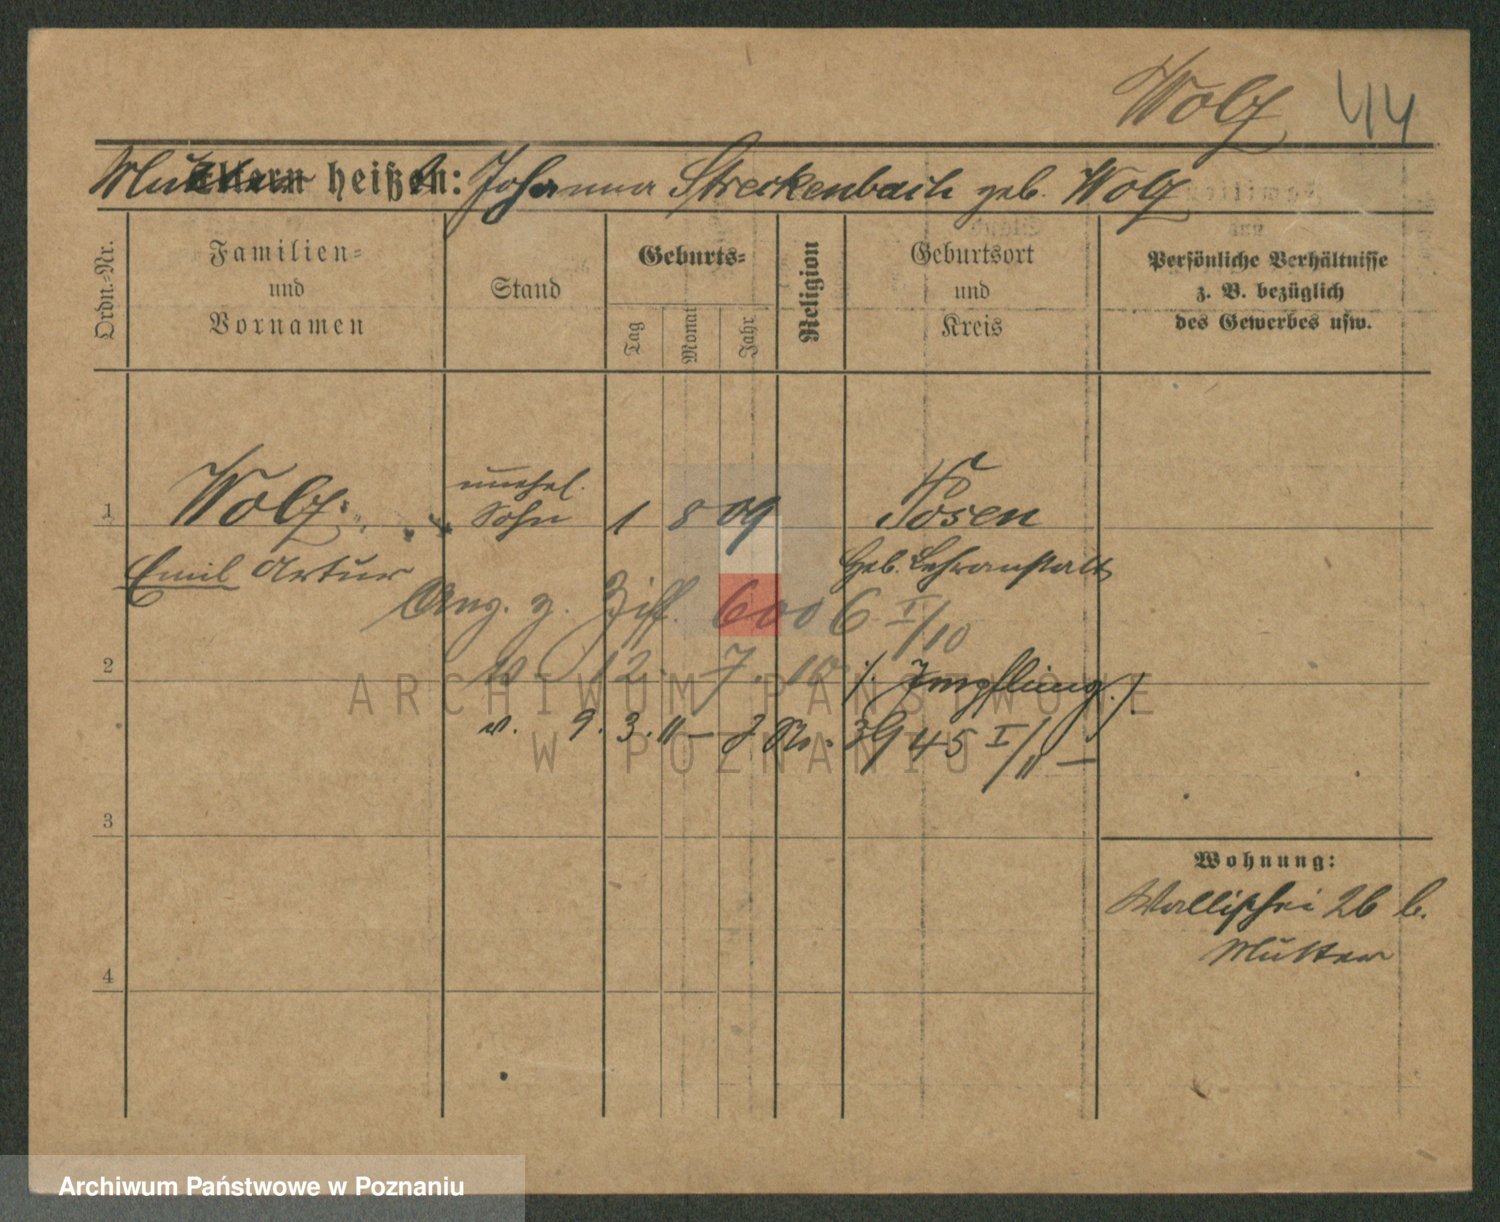 Wolf 44
Mutter heißt: Johanna Streckenbach geb. Wolf
Ordn.-Nr.
Familien-
und
Vornamen
Stand
Geburts-
Tag
Monat
Jahr
Religion
Geburtsort
und
Kreis
Persönliche Verhältnisse
z. B. bezüglich
des Gewerbes usw.
1 Wolf unehel. Sohn 1 8 09 Posen
Emil Artur Geb. Lehranstalt
Anz. z. Ziff. 6006 I/10
2 v. 12. 7. 10 /. Impfling ./
v. 9. 3. 11 – J. Nr. 3945 I/11 –
3
Wohnung:
Wallischei 26 b.
Mutter
4
ARCHIWUM PAŃSTWOWE
W POZNANIU
Archiwum Państwowe w Poznaniu